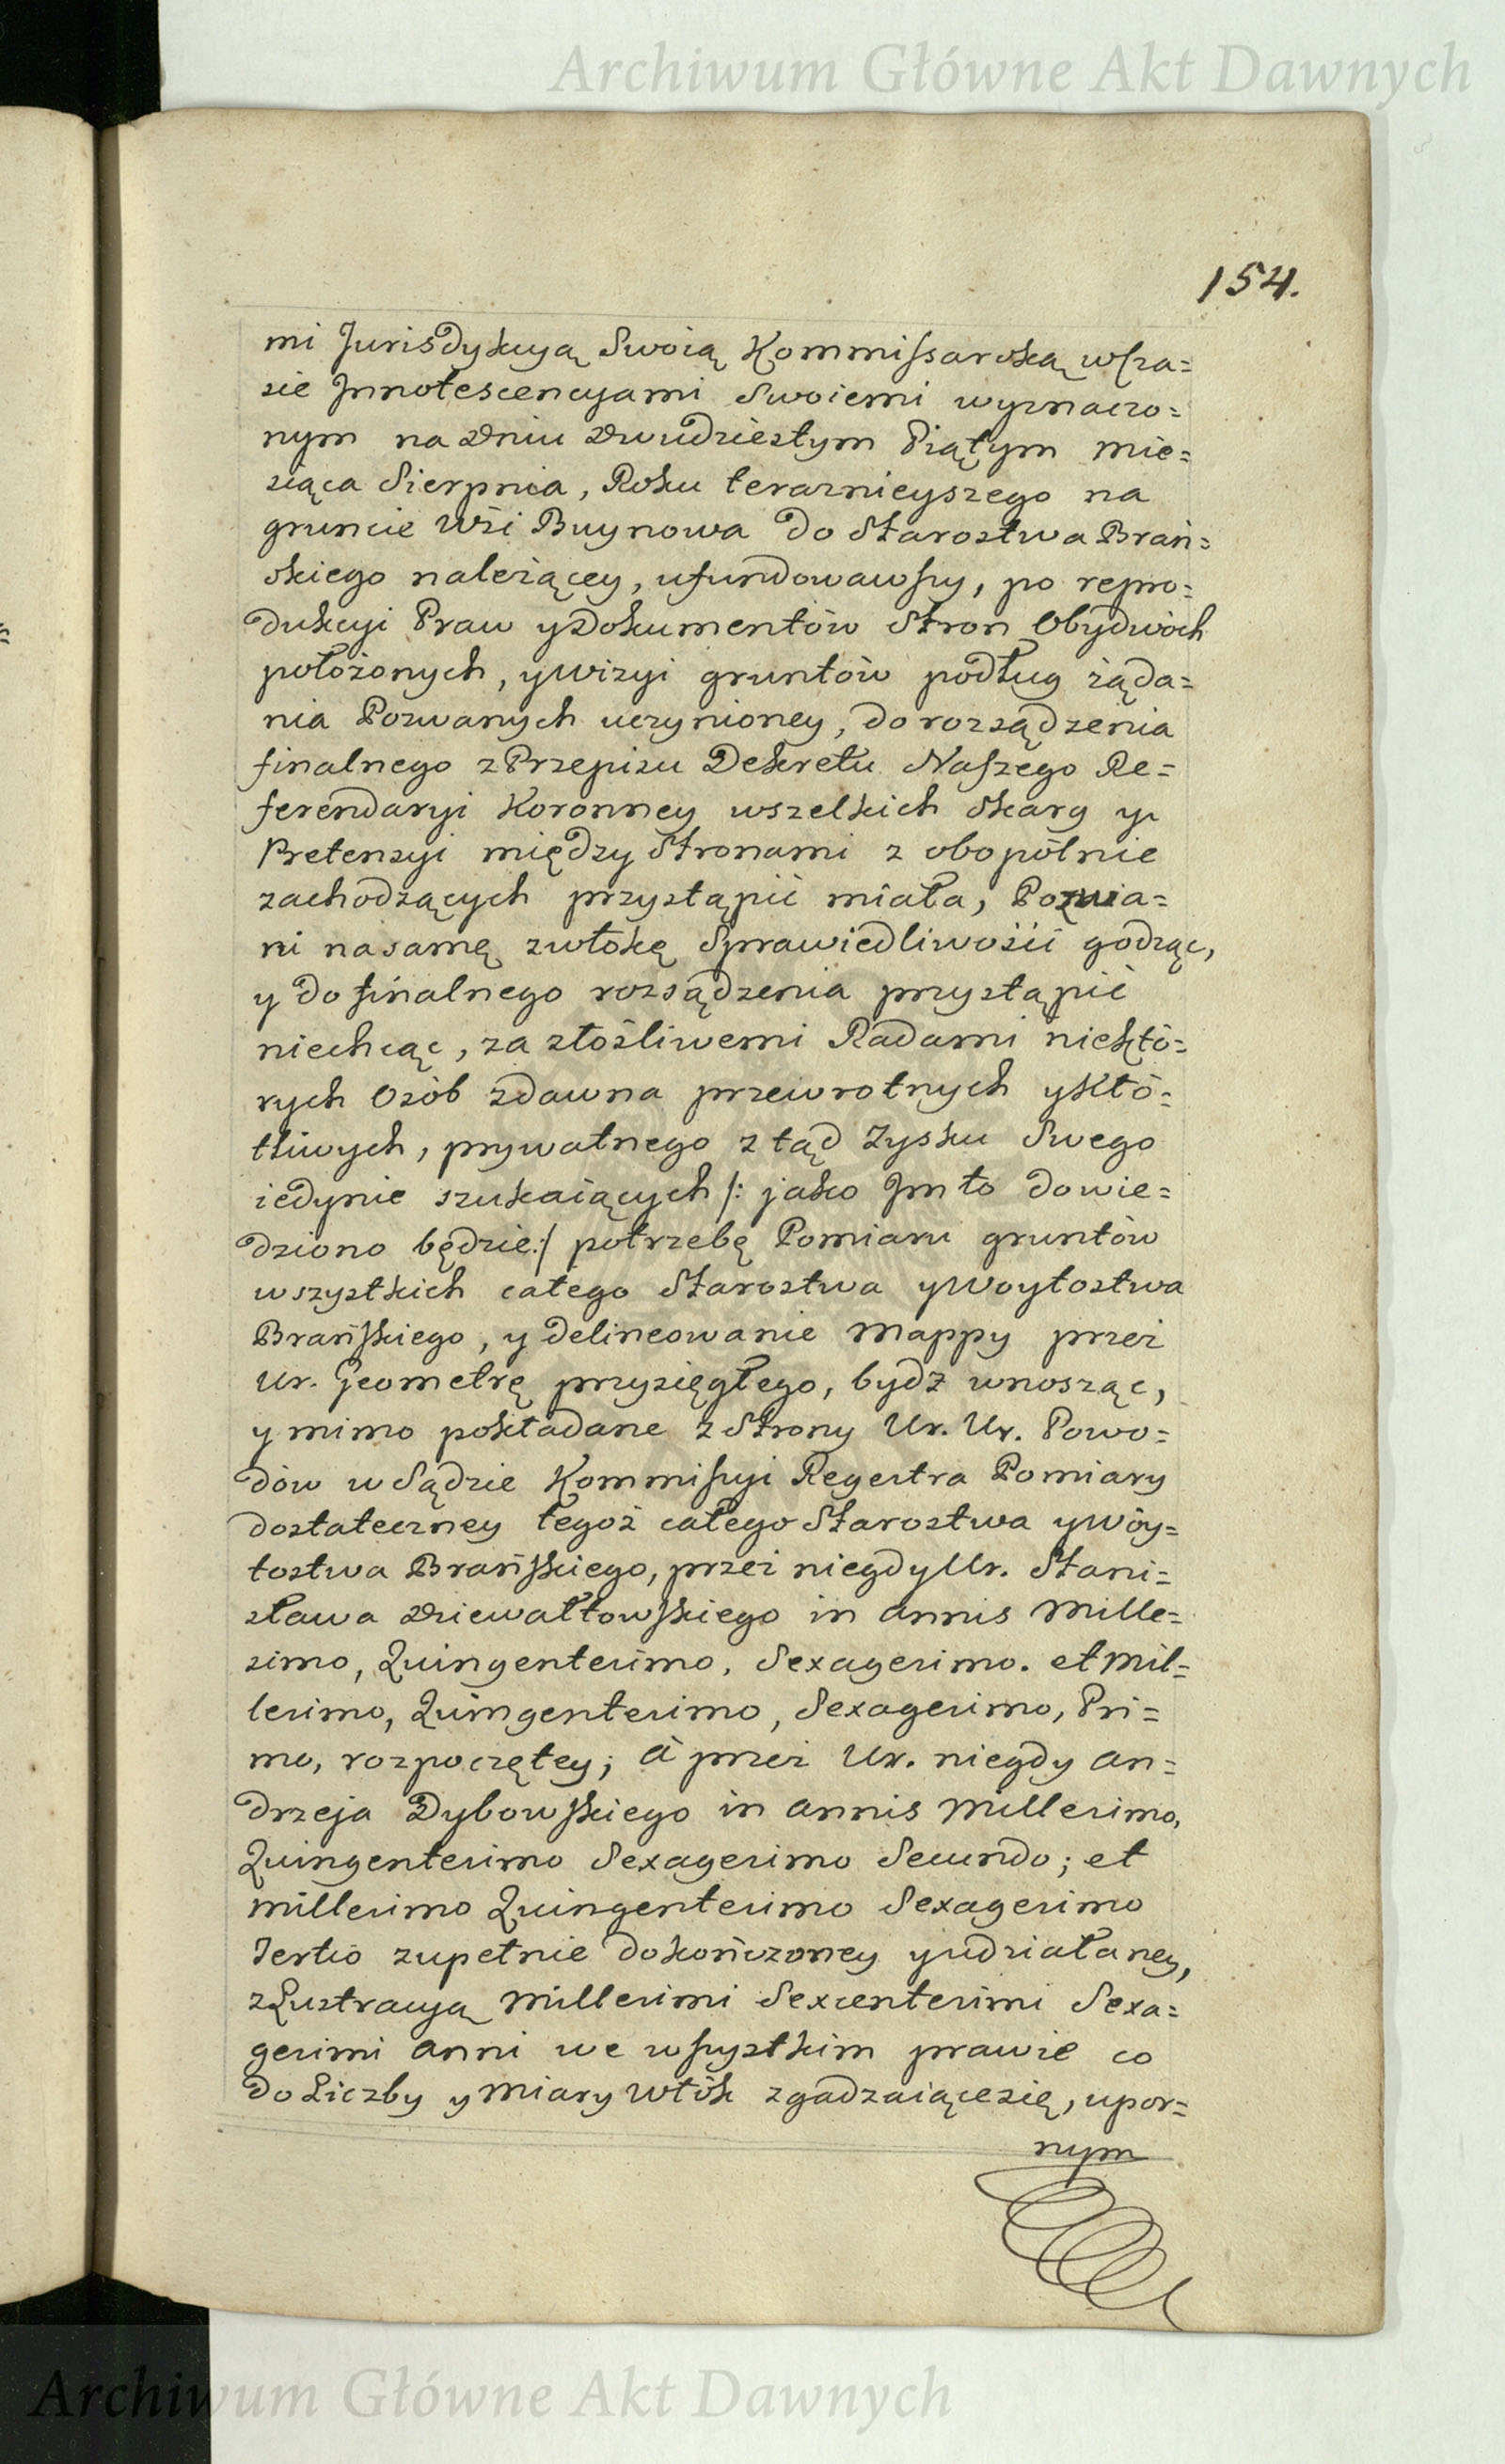 Archiwum Główne Akt Dawnych
154.
mi Jurisdykcyą Swoią Kommissarską wcza=
sie Jnnotescencyami Swoiemi wyznaczo=
nym na Dniu Dwudziestym Piątym mie=
siąca Sierpnia, Roku teraznieyszego na
gruncie Wsi Buynowa do Starostwa Brań=
skiego należącey, ufundowawszy, po repro=
dukcyi Praw y Dokumentów Stron Obydwóch
położonych, y Wizyi gruntów podług żąda=
nia Pozwanych uczynioney, do rozsądzenia
finalnego z Przepisu Dekretu Naszego Re=
ferendaryi Koronney wszelkich Skarg y
Pretensyi między Stronami z obopólnie
zachodzących przystąpić miała, Pozwa=
ni na samę zwłokę Sprawiedliwości godząc,
y do finalnego rozsądzenia przystąpić
niechcąc, za złośliwemi Radami niektó=
rych Osób zdawna przewrotnych y Kłó=
tliwych, prywatnego z tąd Zysku Swego
iedynie szukaiących /: jako Jm to dowie=
dziono będzie :/ potrzebę Pomiaru gruntów
wszystkich całego Starostwa y Woytostwa
Brańskiego, y delineowanie Mappy przez
Ur. Geometrę przysięgłego, bydz wnosząc,
y mimo pokładane z Strony Ur. Ur. Powo=
dów w Sądzie Kommissyi Regestra Pomiary
dostateczney tegoż całego Starostwa y Wóy=
tostwa Brańskiego, przez niegdy Ur. Stani=
sława Dziewałtowskiego in Annis Mille=
simo, Quingentesimo, Sexagesimo. et Mil=
lesimo, Quingentesimo, Sexagesimo, Pri=
mo, rozpoczętey; à przez Ur. niegdy An=
drzeja Dybowskiego in Annis Millesimo,
Quingentesimo Sexagesimo Secundo; et
Millesimo Quingentesimo Sexagesimo
Tertio zupełnie dokończoney y udziałaney,
z Lustracyą Millesimi Sexcentesimi Sexa=
gesimi Anni we wszystkim prawie co
do Liczby y Miary Włók zgadzaiące się, upor=
nym
Archiwum Główne Akt Dawnych